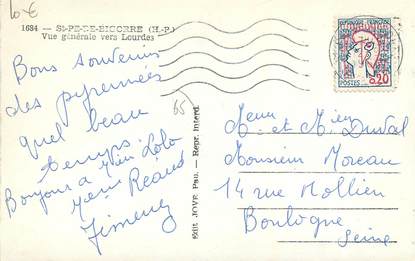 10 €
1684 — St-PÉ-DE-BIGORRE (H.-P.)
Vue générale vers Lourdes
Bons souvenirs
des pyrennées
quel beau
temps.
Bonjour a
Jimeny
65
Edit. JOVE, Pau. — Repr. interd.
RÉPUBLIQUE FRANÇAISE
POSTES
0,20
M. et Duval
Monsieur Moreau
14 rue Mollien
Boulogne
Seine